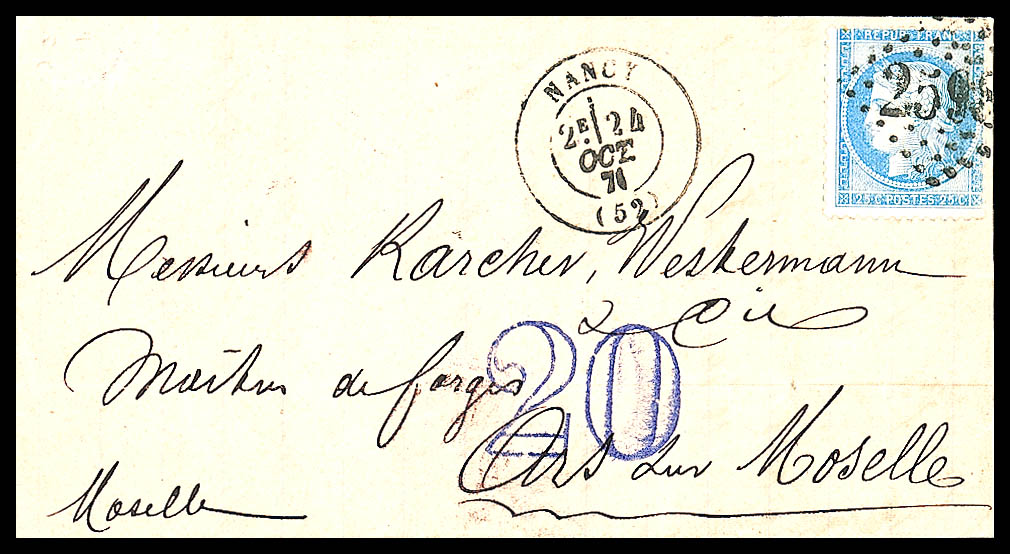 NANCY
2E 24
OCT
71
(52)
REPUB FRANC
259
25 C POSTES 25 C
Messieurs Karcher, Westermann
& Cie
Maitres de forges
20
Ars sur Moselle
Moselle